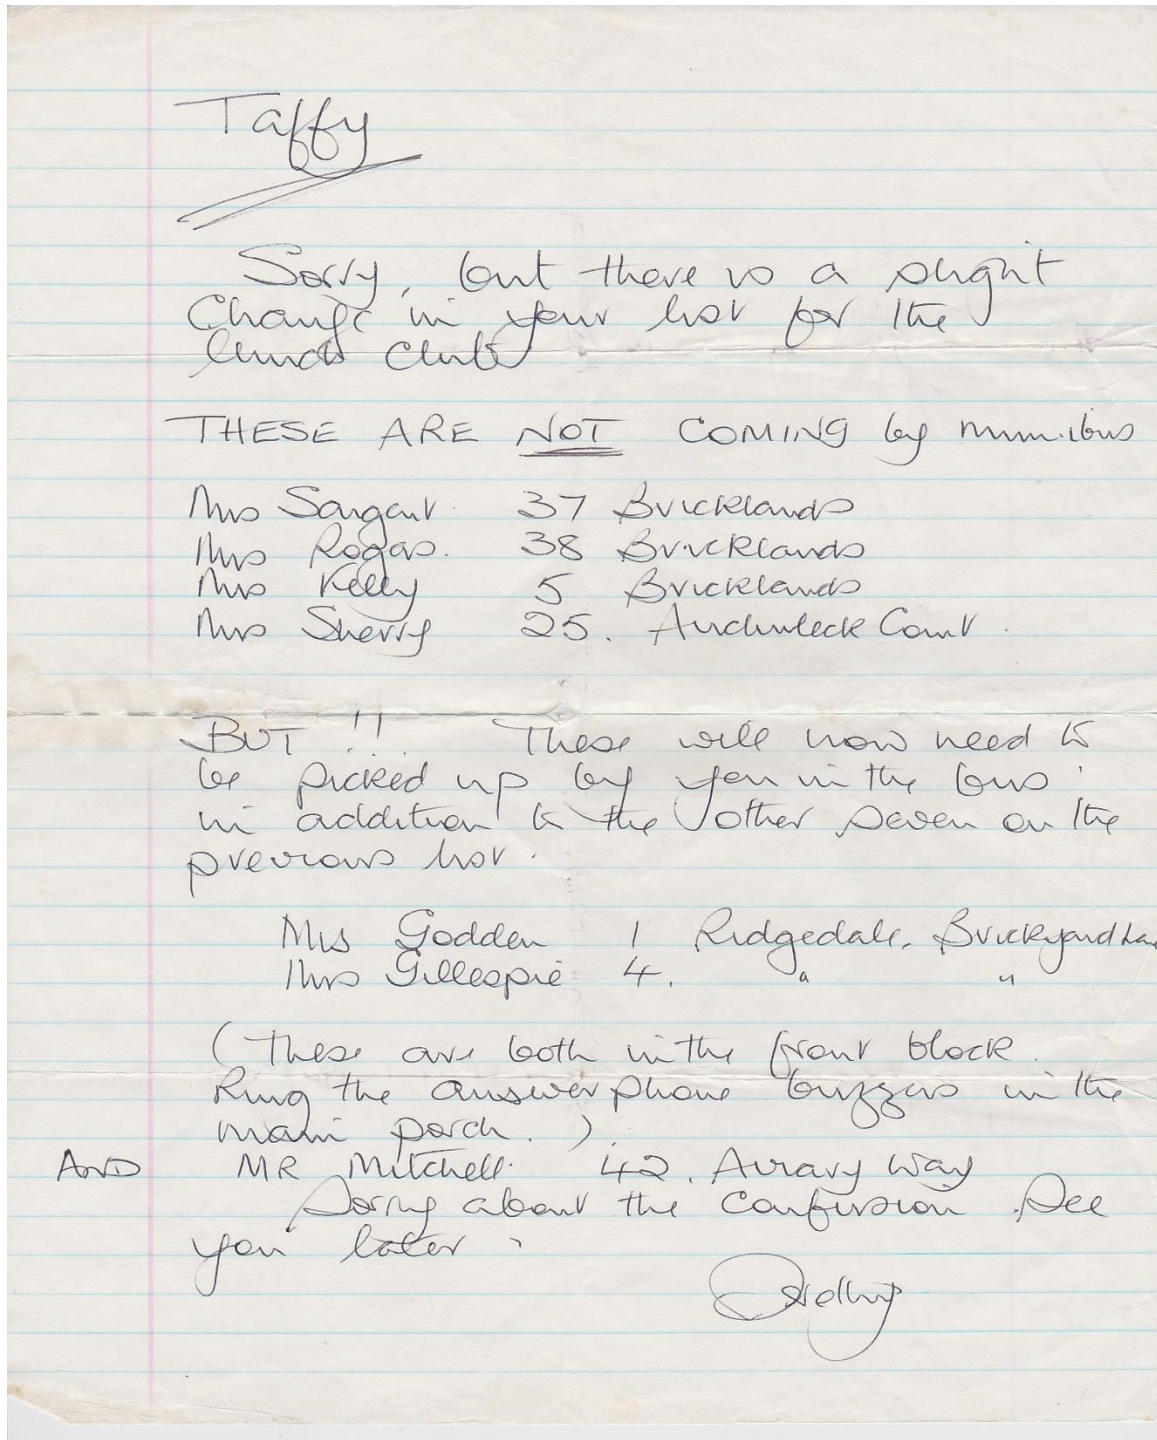 Taffy
Sorry, but there is a slight
Change in your list for the
lunch club
THESE ARE NOT COMING by minibus
Mrs Sargant 37 Bricklands
Mrs Rogers. 38 Bricklands
Mrs Kelly 5 Bricklands
Mrs Sherry 25. Auchinleck Court.
BUT !! These will now need to
be picked up by you in the bus
in addition to the other seven on the
previous list.
Mrs Godden 1 Ridgedale, Brickyard
Mrs Gillespie 4. " "
(These are both in the front block.
Ring the answerphone buzzers in the
main porch.)
AND MR Mitchell. 42. Way
Sorry about the confusion. See
you later.